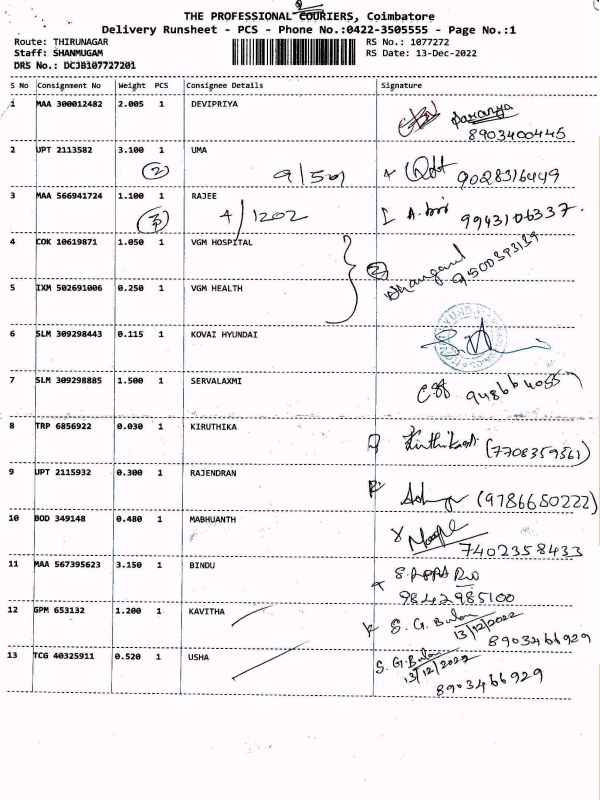 THE PROFESSIONAL COURIERS, Coimbatore
Delivery Runsheet - PCS - Phone No.:0422-3505555 - Page No.:1
Route: THIRUNAGAR RS No.: 1077272
Staff: SHANMUGAM RS Date: 13-Dec-2022
DRS No.: DCJB107727201
S No Consignment No Weight PCS Consignee Details Signature
1 MAA 300012482 2.005 1 DEVIPRIYA
Saranya
8903400445
2 UPT 2113582 3.100 1 UMA
2 9/501 9028316449
3 MAA 566941724 1.100 1 RAJEE
3 4/1202 9943106337.
4 COK 10619871 1.050 1 VGM HOSPITAL
2 9500393139
5 IXM 502691006 0.250 1 VGM HEALTH
6 SLM 309298443 0.115 1 KOVAI HYUNDAI
7 SLM 309298885 1.500 1 SERVALAXMI
8 TRP 6856922 0.030 1 KIRUTHIKA
(7708359361)
9 UPT 2115932 0.300 1 RAJENDRAN
(9786680222)
10 BOD 349148 0.480 1 MABHUANTH
7402358433
11 MAA 567395623 3.150 1 BINDU
9842985100
12 GPM 653132 1.200 1 KAVITHA
S. G. Balan
13/12/2022
8903466929
13 TCG 40325911 0.520 1 USHA
S. G. Balan
13/12/2022
8903466929